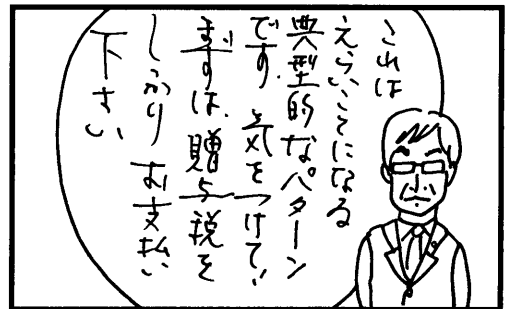 これは
えらいことになる
典型的なパターン
です。気をつけてい
まずは、贈与税を
しっかりお支払い
下さい